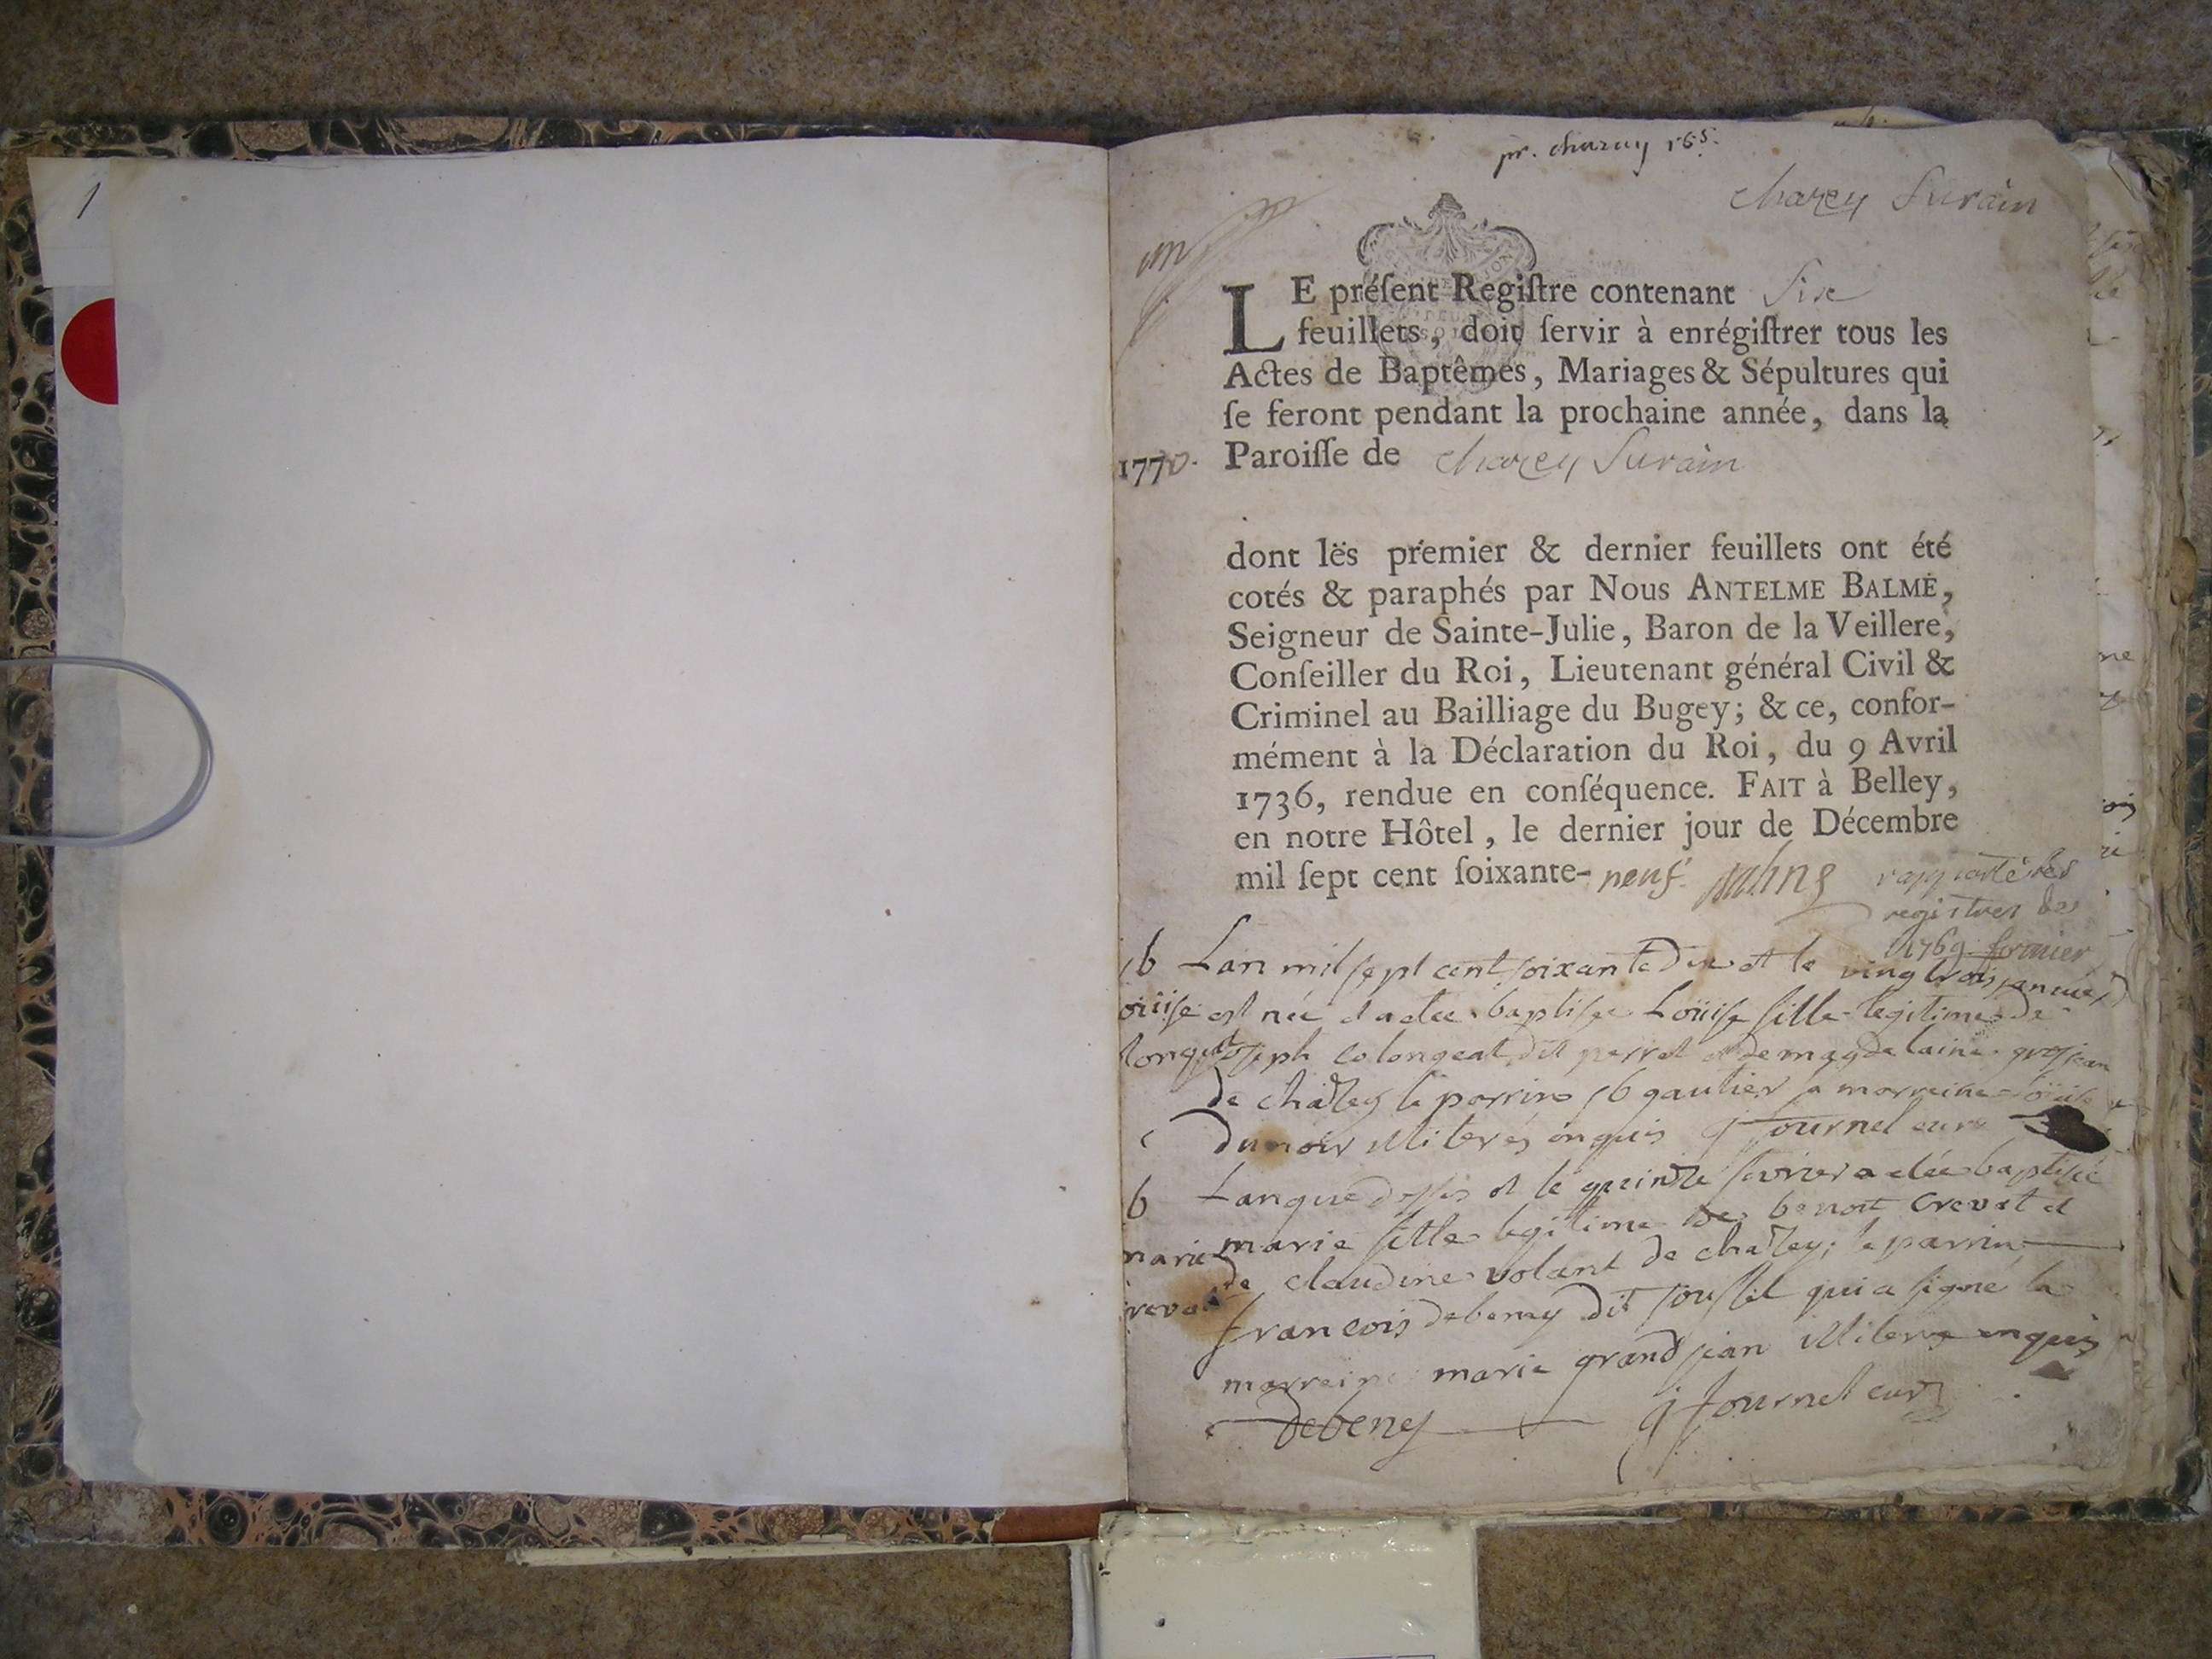 1
pr. charcy 165.
charey Surain
un
LE préſent Regiſtre contenant Six
feuillets, doit ſervir à enrégiſtrer tous les
Actes de Baptêmes, Mariages & Sépultures qui
ſe feront pendant la prochaine année, dans la
1770. Paroiſſe de charey Surain
dont lës premier & dernier feuillets ont été
cotés & paraphés par Nous ANTELME BALME,
Seigneur de Sainte-Julie, Baron de la Veillere,
Conſeiller du Roi, Lieutenant général Civil &
Criminel au Bailliage du Bugey; & ce, confor-
mément à la Déclaration du Roi, du 9 Avril
1736, rendue en conſéquence. FAIT à Belley,
en notre Hôtel, le dernier jour de Décembre
mil ſept cent ſoixante- neuf Balme rapporté les
registres des
1769
b Lan mil sept cent soixante Dix et le vingt trois janvier
est née et a etée baptisee Loüise fille legitime de
joseph Colongeat dit perret et de magdelaine grosjean
de chazey le parrin jb gautier la marreine Loüise
Dunoir illiterés enquis g fournel curé
b Lan que dessus et le quinze fevrier a etée baptisée
marie marie fille legitime de benoit Crevat et
de claudine volant de chazey; le parrin
francois debeney dit qui a signé la
marreine marie grand jean illiteree enquis
Debeney g fournel curé